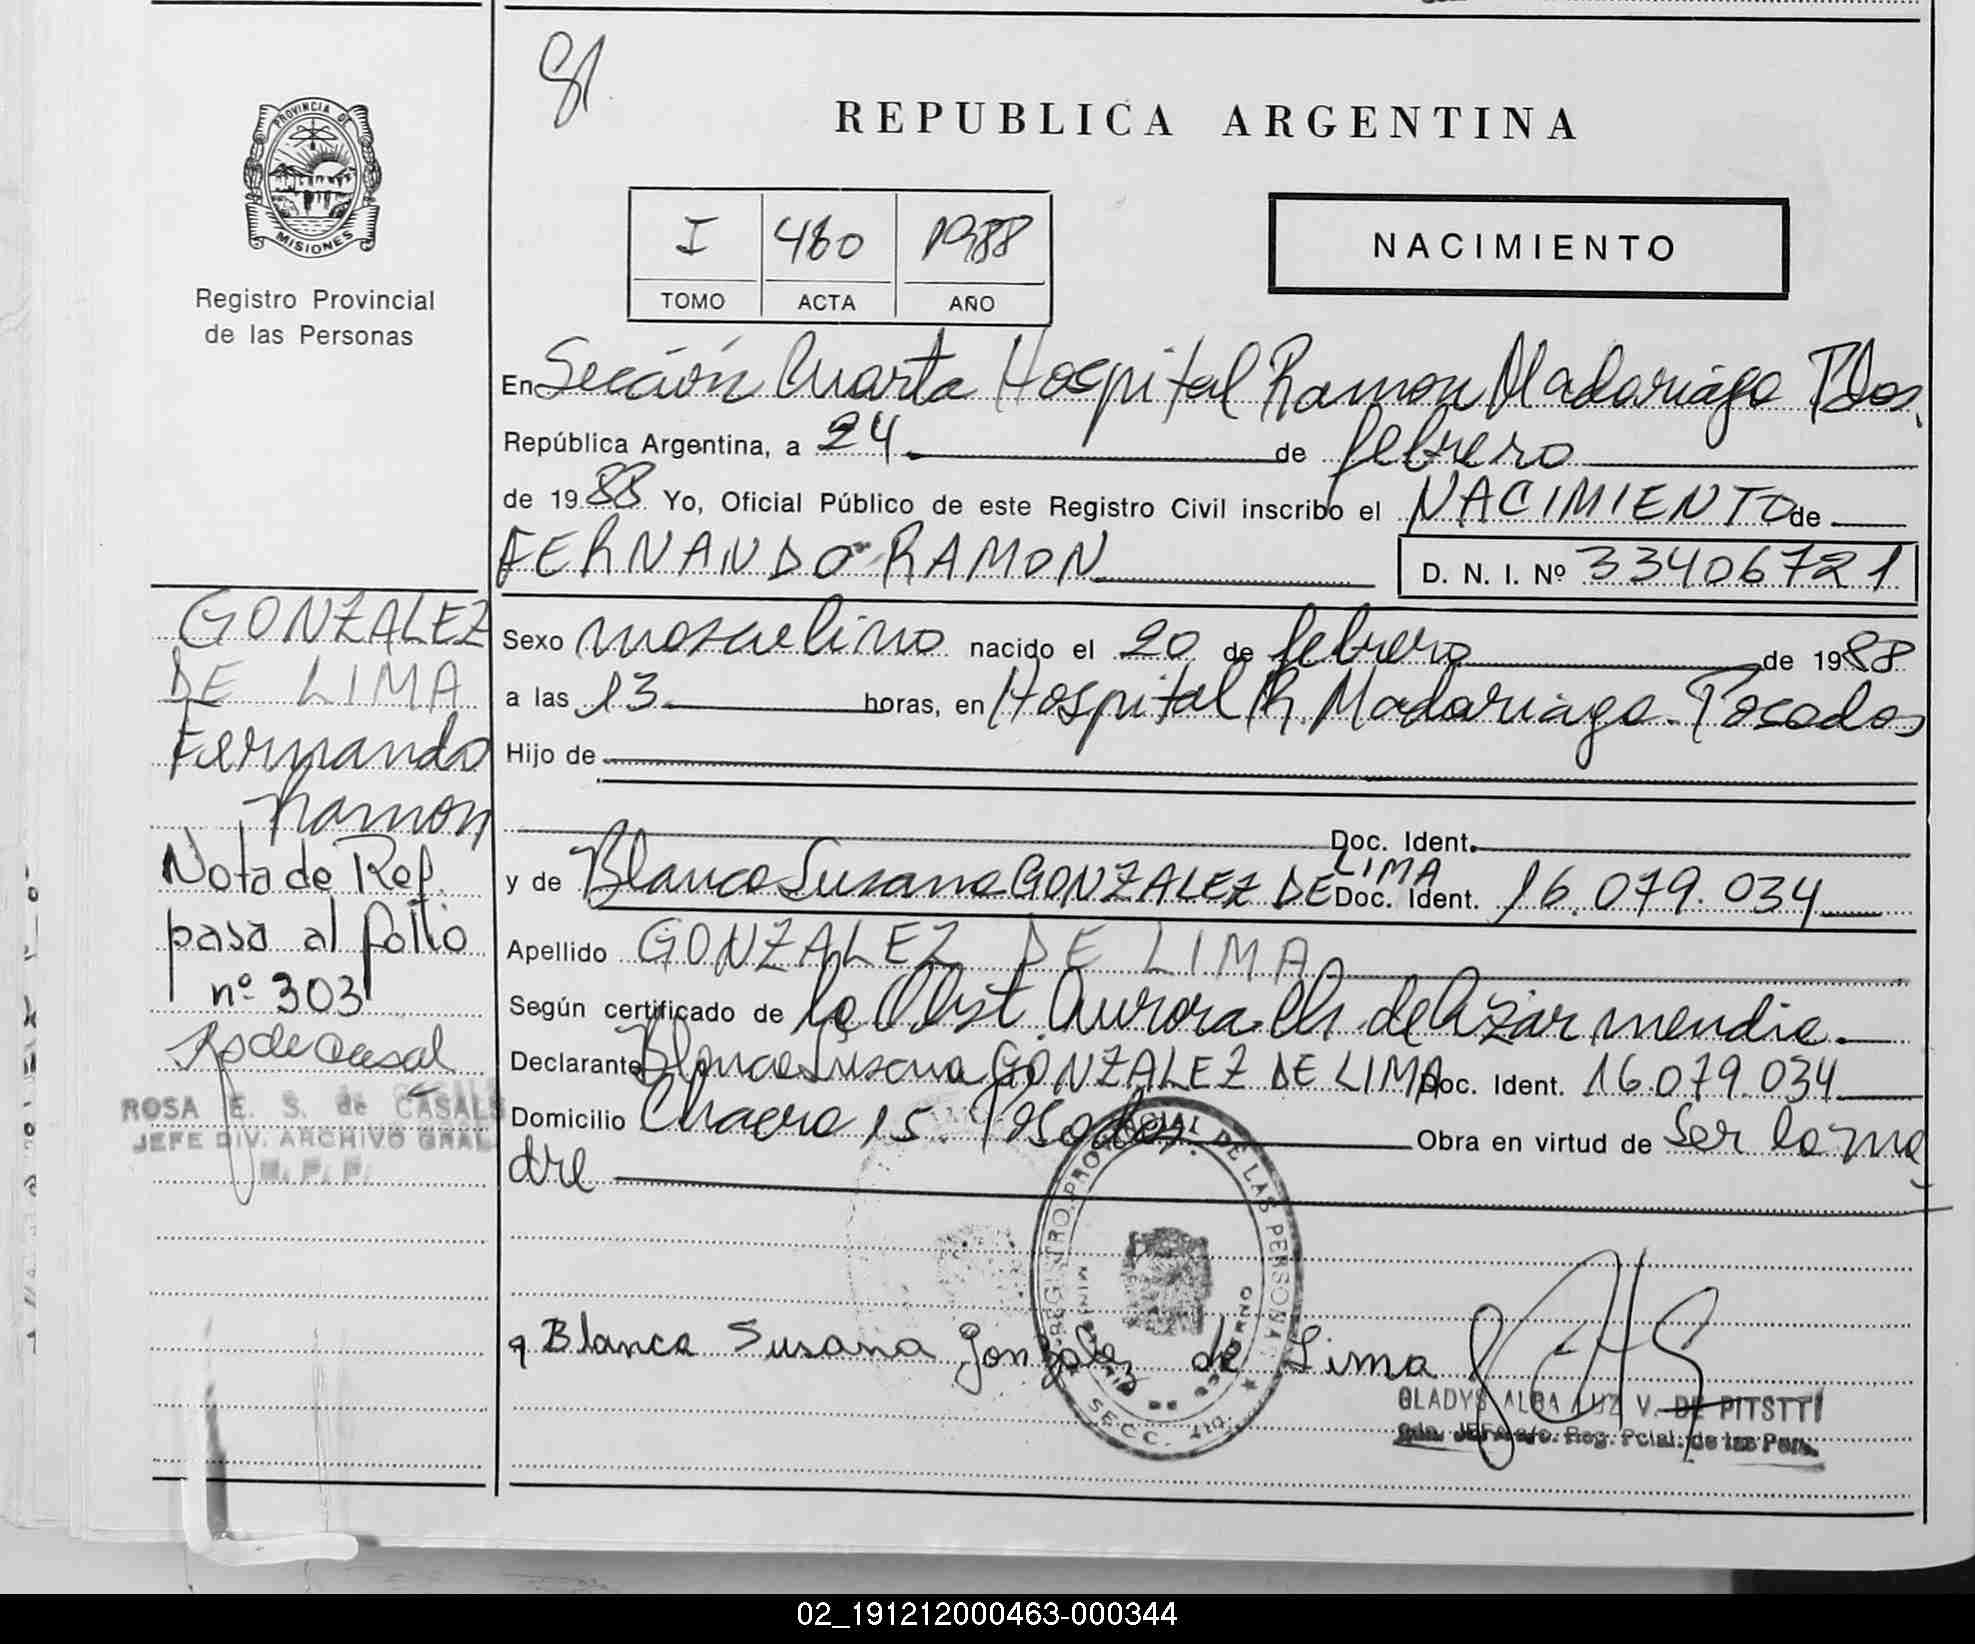 PROVINCIA DE
MISIONES
Registro Provincial
de las Personas
REPUBLICA ARGENTINA
I 460 1988
TOMO ACTA AÑO
NACIMIENTO
En Sección Cuarta Hospital Ramon Madariaga Pdas.
República Argentina, a 24 de febrero
de 1988 Yo, Oficial Público de este Registro Civil inscribo el NACIMIENTO de
FERNANDO RAMON D. N. I. Nº 33406721
Sexo masculino nacido el 20 de febrero de 1988
a las 13 horas, en Hospital R Madariaga. Posadas
Hijo de
Doc. Ident.
y de Blanca Susana GONZALEZ DE LIMA Doc. Ident. 16.079.034
Apellido GONZALEZ DE LIMA
Según certificado de la Obst. Aurora Ch. de Lizarmendia.
Declarante Blanca Susana GONZALEZ DE LIMA Doc. Ident. 16.079.034
Domicilio Chacra 15. Posadas. Obra en virtud de Ser la ma
dre
GONZALEZ
DE LIMA
Fernando
Ramon
Nota de Ref.
pasa al folio
nº 303
ROSA E. S. de CASALS
JEFE DIV. ARCHIVO GRAL
R. P. P.
REGISTRO PROVINCIAL DE LAS PERSONAS
SECC. 4ta
Blanca Susana Gonzalez de Lima
GLADYS ALBA LUZ V. DE PITSTTI
Reg. Pcial. de las Pers.
02_191212000463-000344